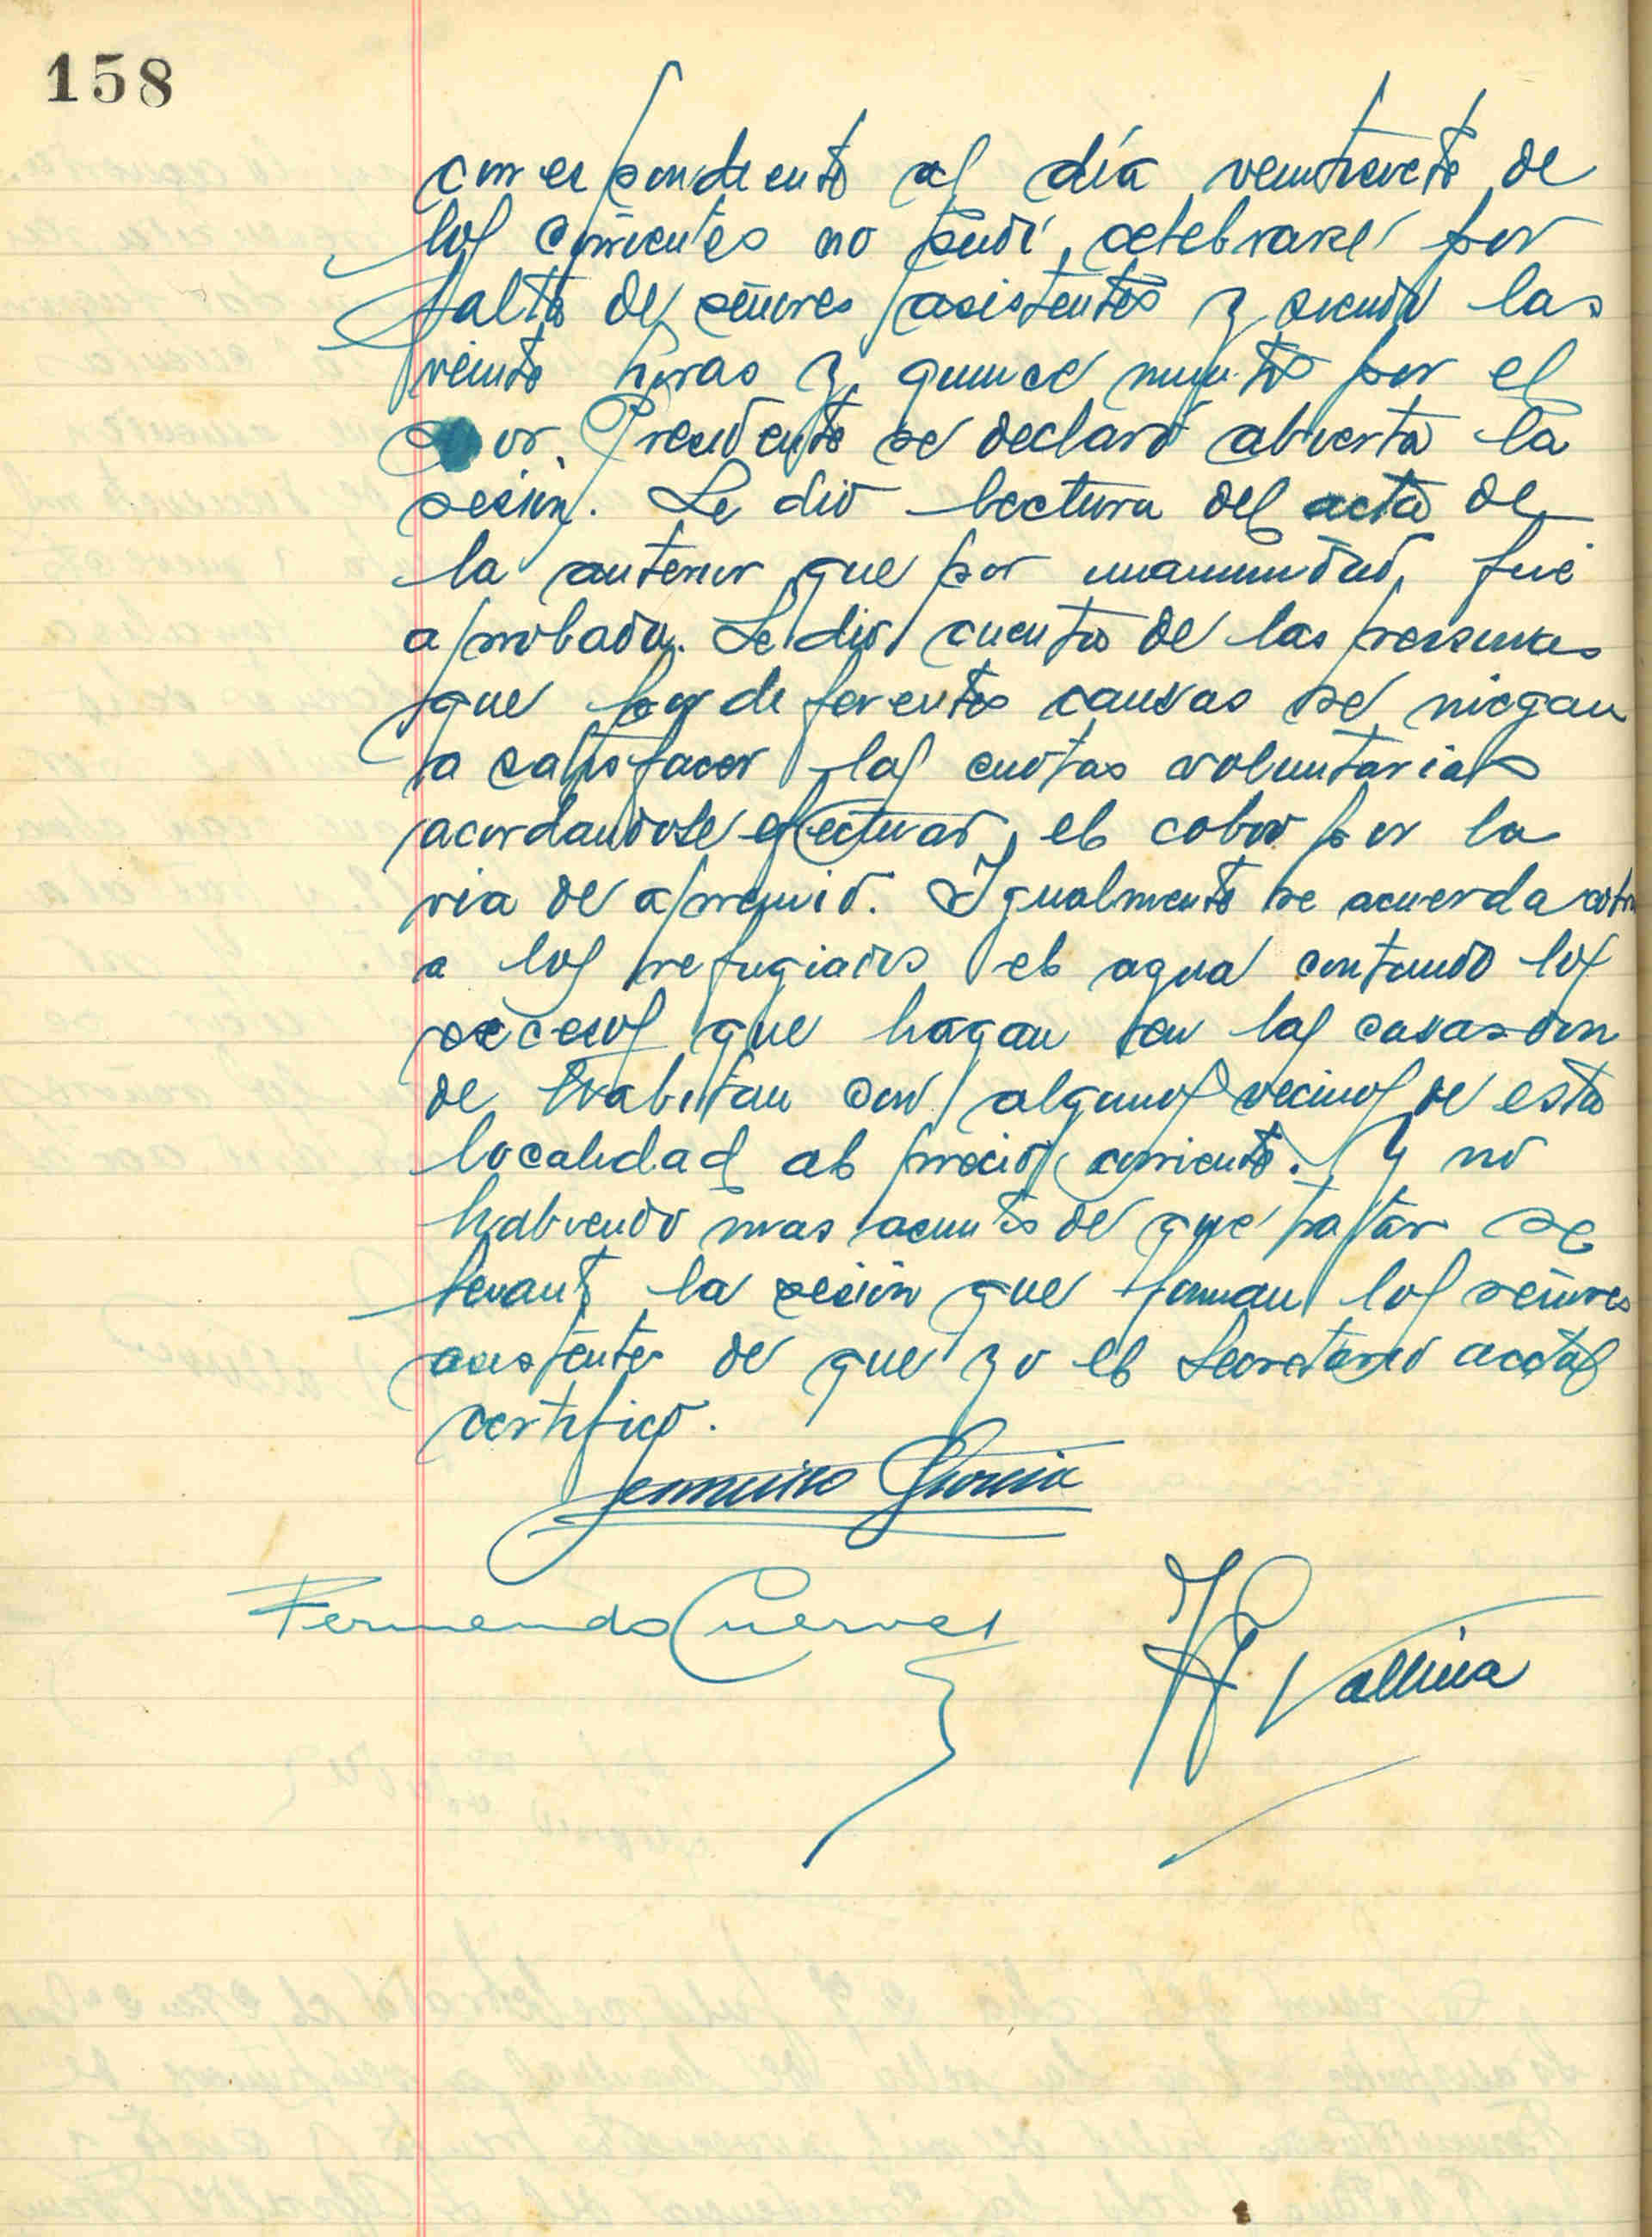 158
correspondiente al día veintisiete de
los corrientes no pudo celebrarse por
falta de señores asistentes y siendo las
veinte horas y quince minutos por el
señor Presidente se declaró abierta la
sesión. Se dio lectura del acta de
la anterior que por unanimidad, fué
aprobada. Se dió cuenta de las personas
que por diferentes causas se niegan
a satisfacer las cuotas voluntarias
acordandose efectuar, el cobro por la
via de apremio. Igualmente se acuerda cobrar
a los refugiados el agua contando los
excesos que hagan en las casas don
de habitan con algunos vecinos de esta
localidad al precio corriente. Y no
habiendo mas asuntos de que tratar se
levantó la sesión que firman los señores
asistentes de que yo el Secretario acctal
certifico.
García
Fernando Cuervo
Vallina